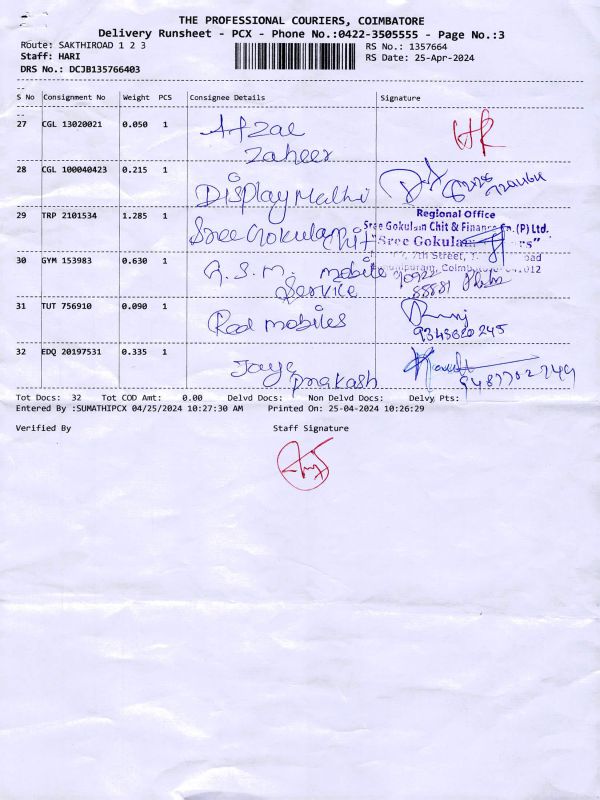 THE PROFESSIONAL COURIERS, COIMBATORE
Delivery Runsheet - PCX - Phone No.:0422-3505555 - Page No.:3
Route: SAKTHIROAD 1 2 3
RS No.: 1357664
Staff: HARI
RS Date: 25-Apr-2024
DRS No.: DCJB135766403
S No Consignment No Weight PCS Consignee Details Signature
27 CGL 13020021 0.050 1 Afzal
Zaheer
28 CGL 100040423 0.215 1 Display Malhi
29 TRP 2101534 1.285 1 Sree Gokulam Chit
Regional Office
Sree Gokulam Chit & Finance Co. (P) Ltd.
"Sree Gokulam
7th Street,
30 GYM 153983 0.630 1 R.S.M. mobile
Service
31 TUT 756910 0.090 1 Red mobiles
9345620245
32 EDQ 20197531 0.335 1 Jaya
prakash
9487702749
Tot Docs: 32 Tot COD Amt: 0.00 Delvd Docs: Non Delvd Docs: Delvy Pts:
Entered By :SUMATHIPCX 04/25/2024 10:27:30 AM Printed On: 25-04-2024 10:26:29
Verified By Staff Signature